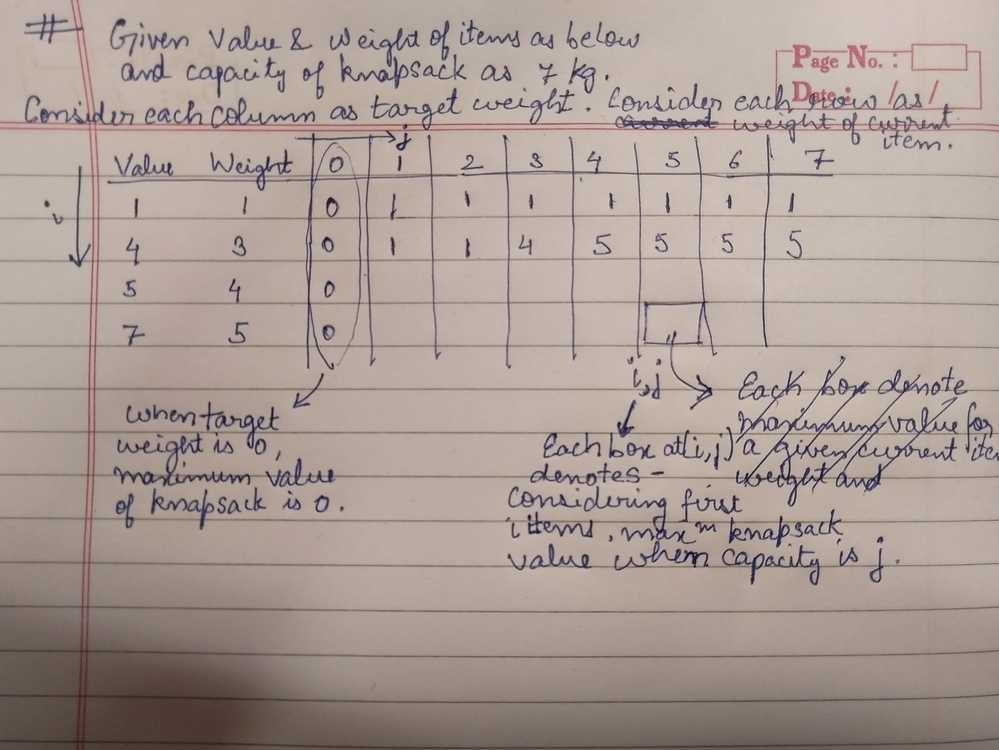 # Given Value & Weight of items as below
and capacity of knapsack as 7 kg.
Page No. :
Date : / /
Consider each column as target weight. Consider each row as
current weight of current
item.
j
Value Weight 0 1 2 3 4 5 6 7
i
1 1 0 1 1 1 1 1 1 1
4 3 0 1 1 4 5 5 5 5
5 4 0
7 5 0
i,j
when target
weight is 0,
maximum value
of knapsack is 0.
Each box at(i,j)
denotes -
Considering first
i items, maxm knapsack
value when capacity is j.
Each box denote
maximum value for
a given current item
weight and